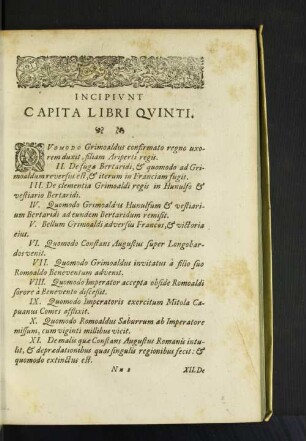 INCIPIVNT
CAPITA LIBRI QVINTI.
QVOMODO Grimoaldus confirmato regno uxo-
rem duxit, filiam Ariperti regis.
II. De fuga Bertaridi, & quomodo ad Gri-
moaldum reversus est, & iterum in Franciam fugit.
III. De clementia Grimoaldi regis in Hunulfo &
vestiario Bertaridi.
IV. Quomodo Grimoaldus Hunulfum & vestiari-
um Bertaridi ad eundem Bertaridum remisit.
V. Bellum Grimoaldi adversus Francos, & victoria
eius.
VI. Quomodo Constans Augustus super Longobar-
dos venit.
VII. Quomodo Grimoaldus invitatus à filio suo
Romoaldo Beneventum advenit.
VIII. Quomodo Imperator accepta obside Romoaldi
sorore à Benevento discessit.
IX. Quomodo Imperatoris exercitum Mitola Ca-
puanus Comes afflixit.
X. Quomodo Romoaldus Saburrum ab Imperatore
missum, cum viginti millibus vicit.
XI. De malis quæ Constans Augustus Romanis intu-
lit, & deprædationibus quas singulis regionibus fecit: &
quomodo extinctus est.
XII. De